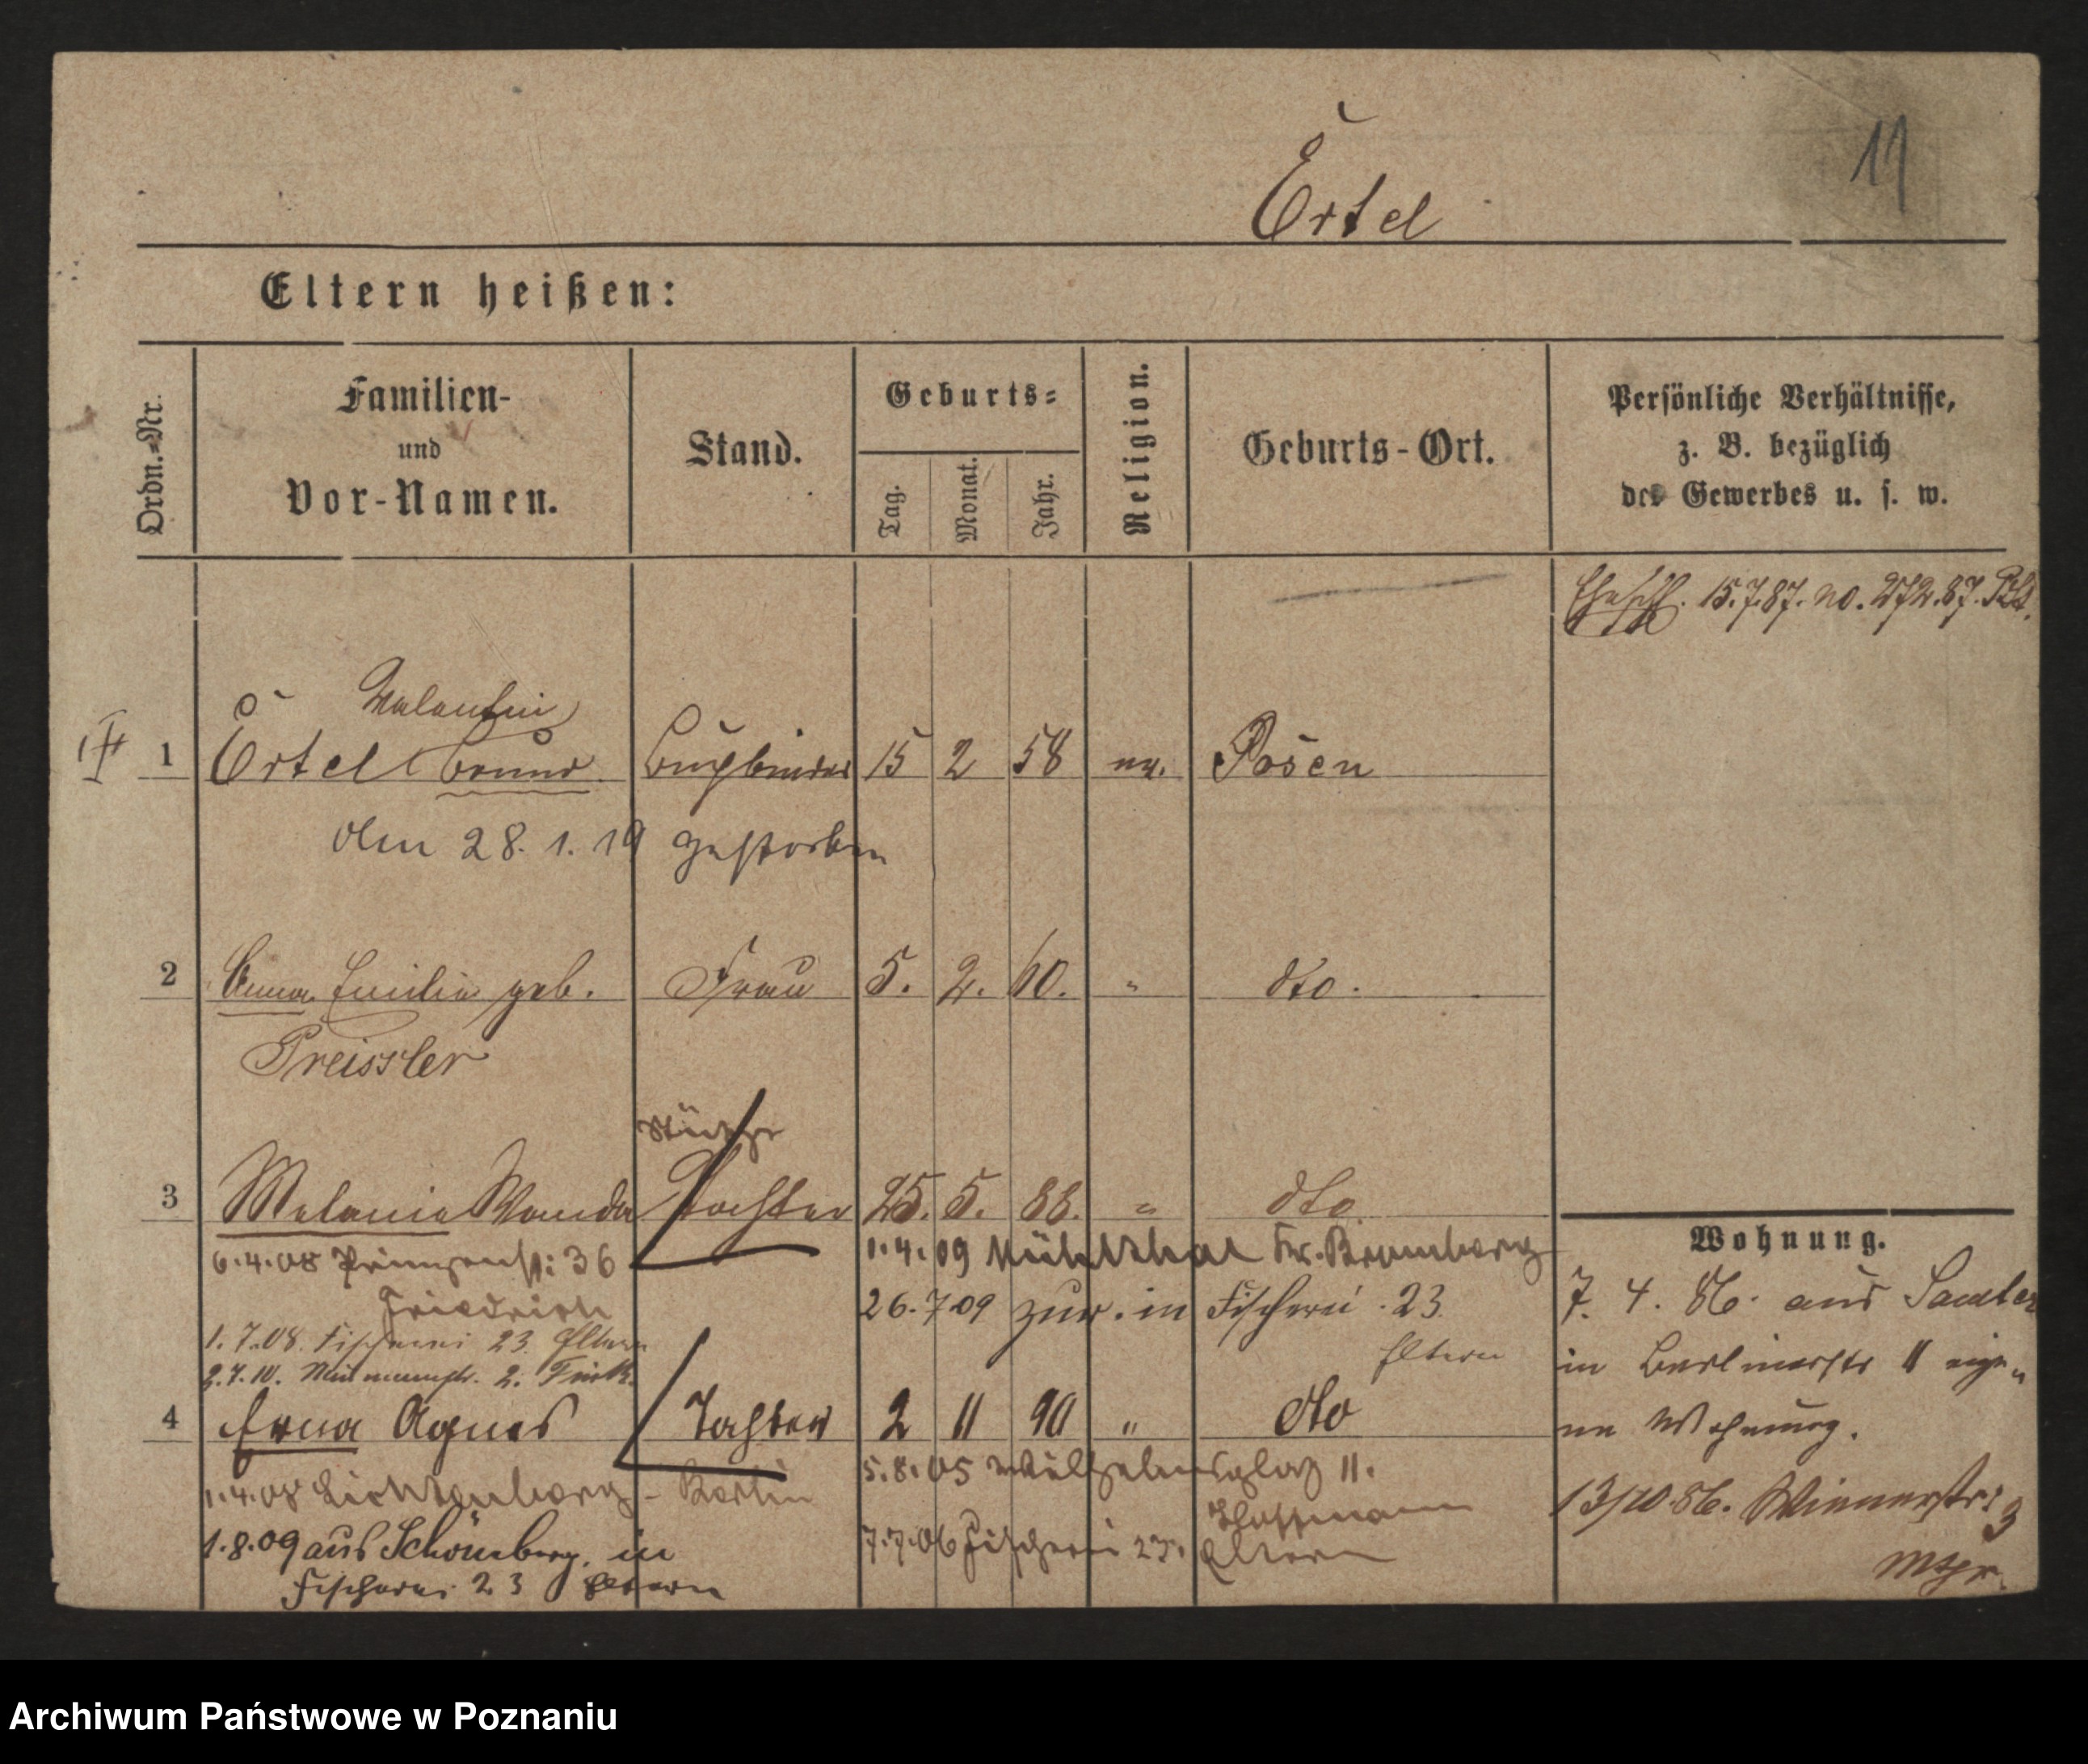 11
Ertel
Eltern heißen:
Ordn.-Nr.
Familien-
und
Vor-Namen.
Stand.
Geburts-
Tag.
Monat.
Jahr.
Religion.
Geburts-Ort.
Persönliche Verhältnisse,
z. B. bezüglich
des Gewerbes u. s. w.
Eheschl. 15.7.87. No. 272.87. Pbt.
Valentin
1 Ertel Bruno Buchbinder 15 2 58 ev. Posen
Am 28.1.19 gestorben
2 Anna Emilie geb. Frau 5. 2. 60. " dto.
Preissler
Stütze
3 Melanie Wanda Tochter 25. 5. 88. " dto
6.4.08 Prinzenstr: 36
Friedrich
1.4.09 Mühlthal Kr. Bromberg
26.7.09 zur. in Fischerei 23
Eltern
1.7.08. Fischerei 23. Eltern
2.7.10. 2.
4 Erna Agnes Tochter 2 11 90 " dto
1.4.08 Lichtenberg - Berlin
1.8.09 aus Schöneberg. in
Fischerei 23 Eltern
5.8.05 Wilhelmsplatz 11.
Hoffmann
7.7.06 Fischerei 23. Eltern
Wohnung.
7. 4. 86. aus Samter
in Berlinerstr 11 eige-
ne Wohnung.
13/10.86. Wienerstr: 3
Archiwum Państwowe w Poznaniu